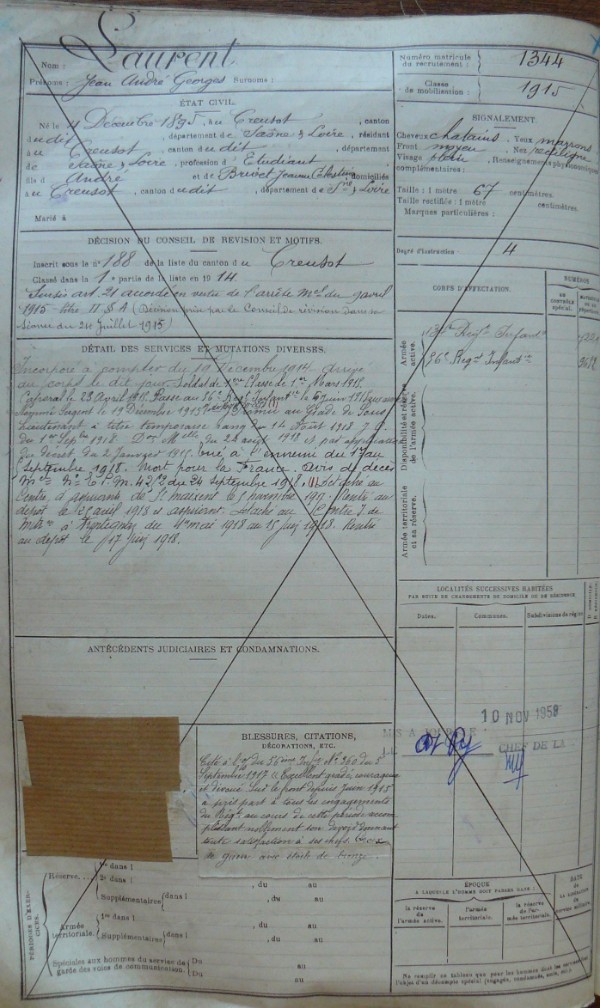 Laurent
Nom :
Prénoms : Jean André Georges Surnoms :
Numéro matricule du recrutement : 1344
Classe de mobilisation : 1915
ÉTAT CIVIL.
Né le 4 Décembre 1895, au Creusot, canton
dudit, département de Saône & Loire, résidant
au Creusot canton dudit, département
de Saône & Loire, profession d'Etudiant
fils d'André et de domiciliés
au Creusot, canton dudit, département de Sne & Loire
Marié à
SIGNALEMENT.
Cheveux chatains Yeux marrons
Front moyen Nez rectiligne
Visage plein Renseignements physionomiques
complémentaires :
Taille : 1 mètre 67 centimètres.
Taille rectifiée : 1 mètre centimètres.
Marques particulières :
Degré d'instruction : 4
DÉCISION DU CONSEIL DE RÉVISION ET MOTIFS.
Inscrit sous le n° 188 de la liste du canton du Creusot
Classé dans la 1e partie de la liste en 1914.
Sursis art. 21 accordé en vertu de l'arrêté Mel du avril
1915 titre II § A (Décision prise par le Conseil de révision dans sa
séance du 24 Juillet 1915)
DÉTAIL DES SERVICES ET MUTATIONS DIVERSES.
Incorporé à compter du 19 Décembre 1914. Arrivé
au corps le dit jour. Soldat de 1ère Classe le 1er Mars 1915.
Caporal le 23 avril 1915. Passé au 56e Régt Infantie le 6 juin 1915
Nommé Sergent le 19 Décembre 1915. Promu au grade de sous
lieutenant à titre temporaire rang du 1er Août 1918 J.O.
du 1er Septbre 1918. Don Mlle du 22 août 1918 et par application
du décret du 2 Janvier 1915. Tué à l'ennemi du 17 au
Septembre 1918. Mort pour la France. Avis de décès
Mel No du 24 septembre 1918. (1) Détaché au
Centre d'aspirants de St Maixent le novembre 1917. Rentré au
dépôt le avril 1918 et aspirant. Détaché au Centre I de
à du 4 mai 1918 au 15 juin 1918. Rentré
au dépôt le 17 Juin 1918.
CORPS D'AFFECTATION.
NUMÉROS
Armée active.
134e Régt Infantie
56e Régt Infantie
Disponibilité et réserve de l'armée active.
Armée territoriale et sa réserve.
LOCALITÉS SUCCESSIVES HABITÉES
PAR SUITE DE CHANGEMENTS DE DOMICILE OU DE RÉSIDENCE.
Dates.
Communes.
Subdivisions de région
ANTÉCÉDENTS JUDICIAIRES ET CONDAMNATIONS.
10 NOV 1958
CHEF DE LA
BLESSURES, CITATIONS,
DÉCORATIONS, ETC.
Cité à l'or. du 56ème Infie No 360 du 5
Septembre 1917 « Excellent gradé, courageux
et dévoué. Sur le front depuis Juin 1915
a pris part à tous les engagements
du Régt au cours de cette période accom
plissant vaillamment son devoir donnant
toute satisfaction à ses chefs. Croix
de guerre avec étoile de bronze.
PÉRIODES D'EXERCICES.
Réserve.
1re dans l , du au
2e dans l , du au
Supplémentaires dans l , du au
Armée territoriale.
1re dans l , du au
Supplémentaires dans l , du au
Spéciales aux hommes du service de
garde des voies de communication.
Du au
Du au
ÉPOQUE
À LAQUELLE L'HOMME DOIT PASSER DANS :
la réserve de l'armée active.
l'armée territoriale.
la réserve de l'armée territoriale.
DATE DE LA LIBÉRATION du service militaire.
Ne remplir ce tableau que pour les hommes dont les services font
l'objet d'un décompte spécial (engagés, condamnés, omis, etc.)